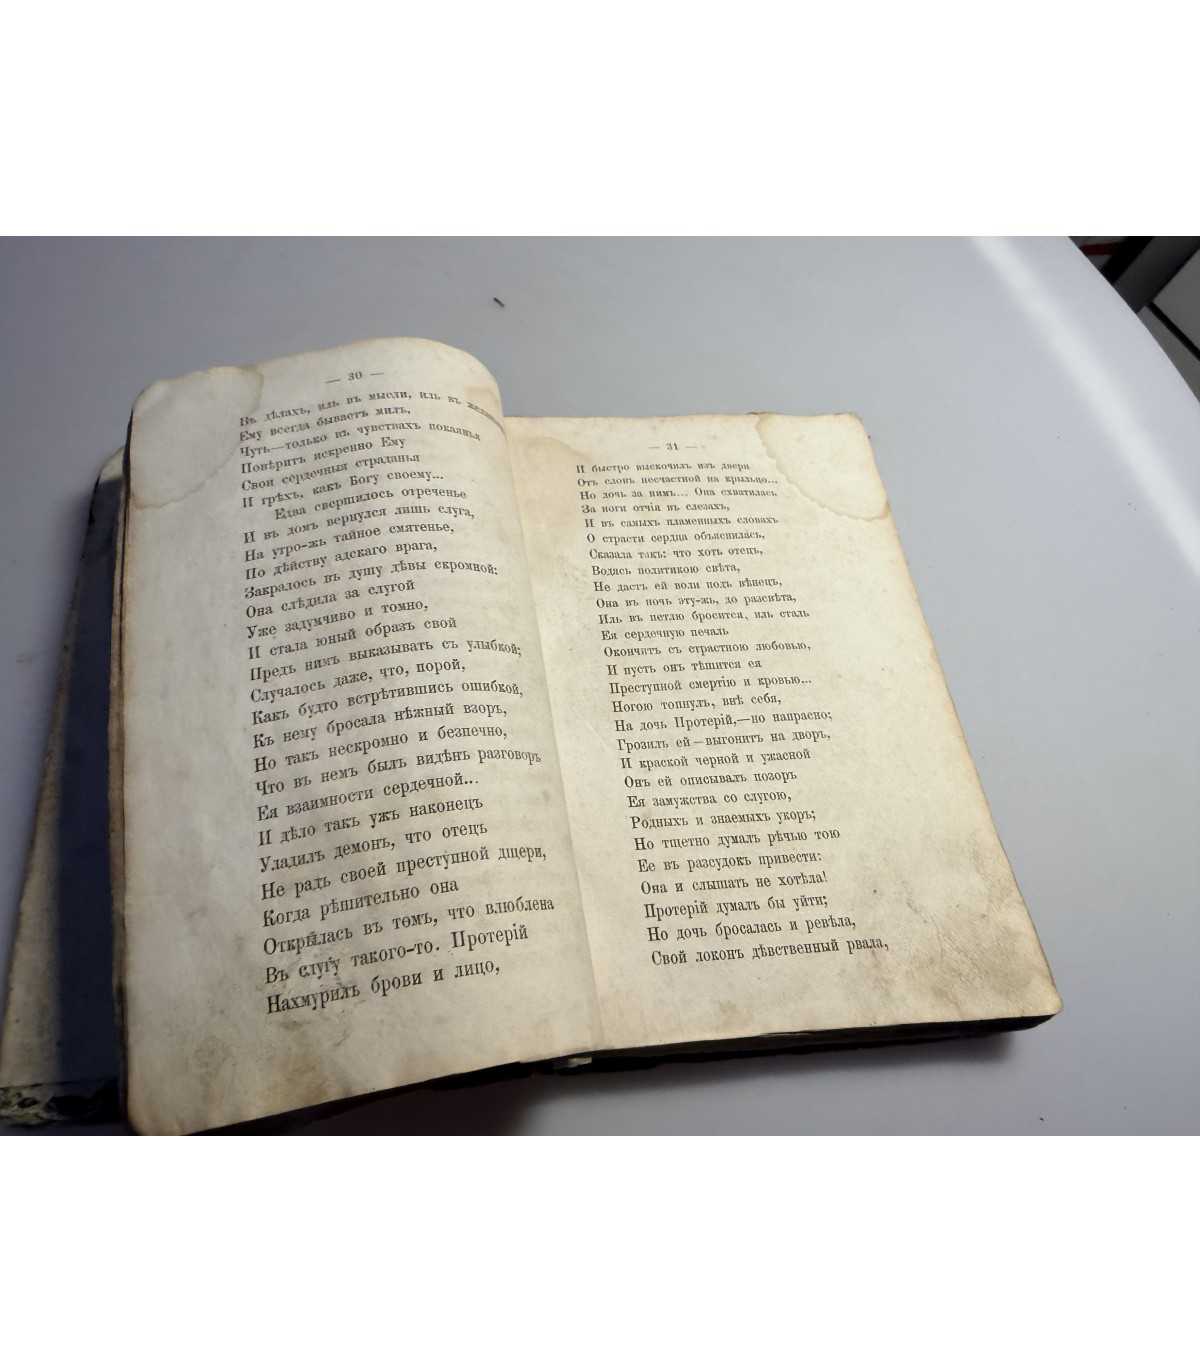 — 30 —
Въ дѣлахъ, иль въ мысли, иль въ
Ему всегда бываетъ милъ,
Чуть—только въ чувствахъ покаянья
Повѣритъ искренно Ему
Свои сердечныя страданья
И грѣхъ, какъ Богу своему...
Едва свершилось отреченье
И въ домъ вернулся лишь слуга,
На утро-жъ тайное смятенье,
По дѣйству адскаго врага,
Закралось въ душу дѣвы скромной:
Она слѣдила за слугой
Уже задумчиво и томно,
И стала юный образъ свой
Предъ нимъ выказывать съ улыбкой;
Случалось даже, что, порой,
Какъ будто встрѣтившись ошибкой,
Къ нему бросала нѣжный взоръ,
Но такъ нескромно и безпечно,
Что въ немъ былъ видѣнъ разговоръ
Ея взаимности сердечной...
И дѣло такъ ужъ наконецъ
Уладилъ демонъ, что отецъ
Не радъ своей преступной дщери,
Когда рѣшительно она
Открылась въ томъ, что влюблена
Въ слугу такого-то. Протерій
Нахмурилъ брови и лицо,
— 31 —
И быстро выскочилъ изъ двери
Отъ словъ несчастной на крыльцо...
Но дочь за нимъ... Она схватилась
За ноги отчія въ слезахъ,
И въ самыхъ пламенныхъ словахъ
О страсти сердца объяснилась,
Сказала такъ: что хоть отецъ,
Водясь политикою свѣта,
Не дастъ ей воли подъ вѣнецъ,
Она въ ночь эту-жъ, до разсвѣта,
Иль въ петлю бросится, иль сталь
Ея сердечную печаль
Окончитъ съ страстною любовью,
И пусть онъ тѣшится ея
Преступной смертію и кровью...
Ногою топнулъ, внѣ себя,
На дочь Протерій,—но напрасно;
Грозилъ ей—выгонитъ на дворъ,
И краской черной и ужасной
Онъ ей описывалъ позоръ
Ея замужства со слугою,
Родныхъ и знаемыхъ укоръ;
Но тщетно думалъ рѣчью тою
Ее въ разсудокъ привести:
Она и слышать не хотѣла!
Протерій думалъ бы уйти;
Но дочь бросалась и ревѣла,
Свой локонъ дѣвственный рвала,